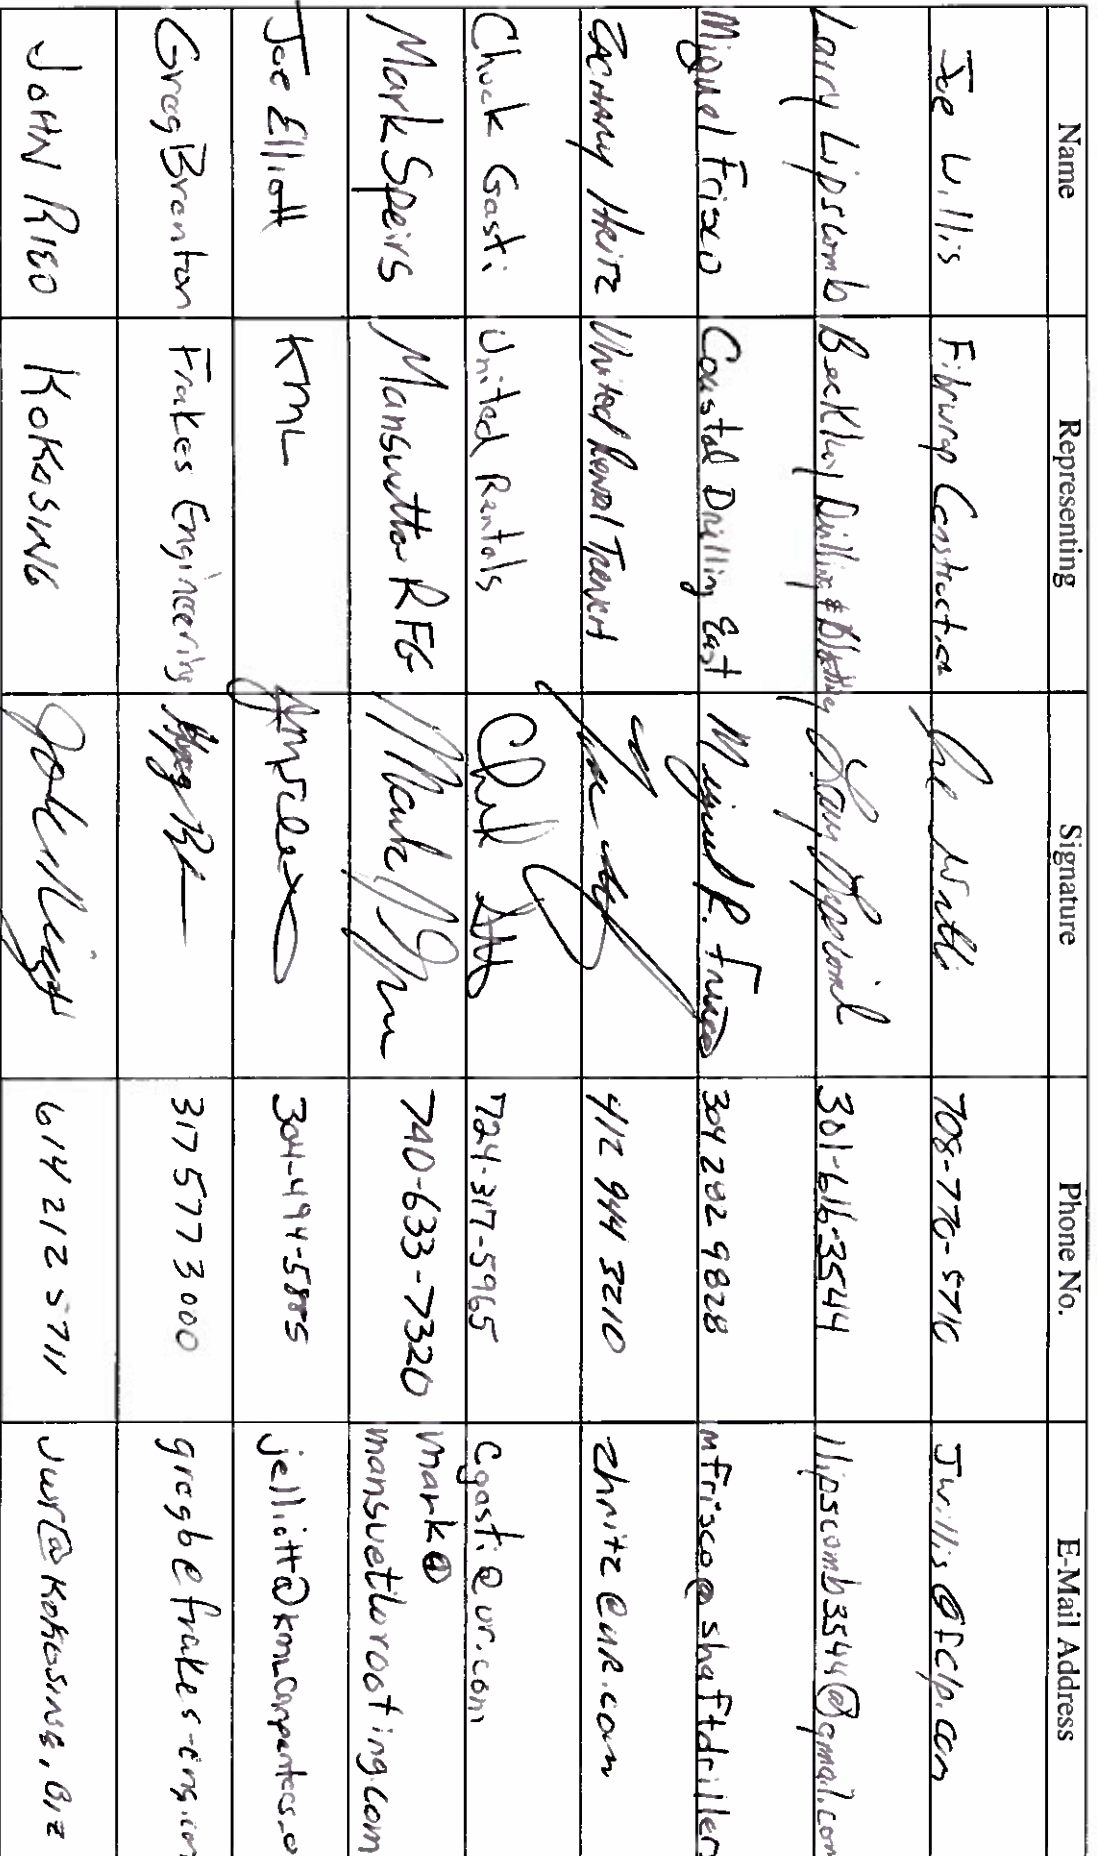 Name Representing Signature Phone No. E-Mail Address
Joe Willis Fibrwrap Construction 708-770-5710 Jwillis@fclp.com
Larry Lipscomb Drilling & Blasting 301-616-3544 llipscomb3544@gmail.com
Miguel Frisco Coastal Drilling East Miguel R. Frisco 304 282 9828 mfrisco@shaftdriller
Zachary Heitz United Rental Trench 412 944 3210 @ur.com
Chuck Gasti United Rentals 724-317-5965 Cgasti@ur.com
Mark Speirs Mansuetto RFG 740-633-7320 mark@
mansuettoroofing.com
Joe Elliott KML 304-494-5885
Greg Branton Frakes Engineering 317 577 3000 gregb@frakes-eng.com
John Rigo Kokosing 614 212 5711 jwr@kokosing.biz